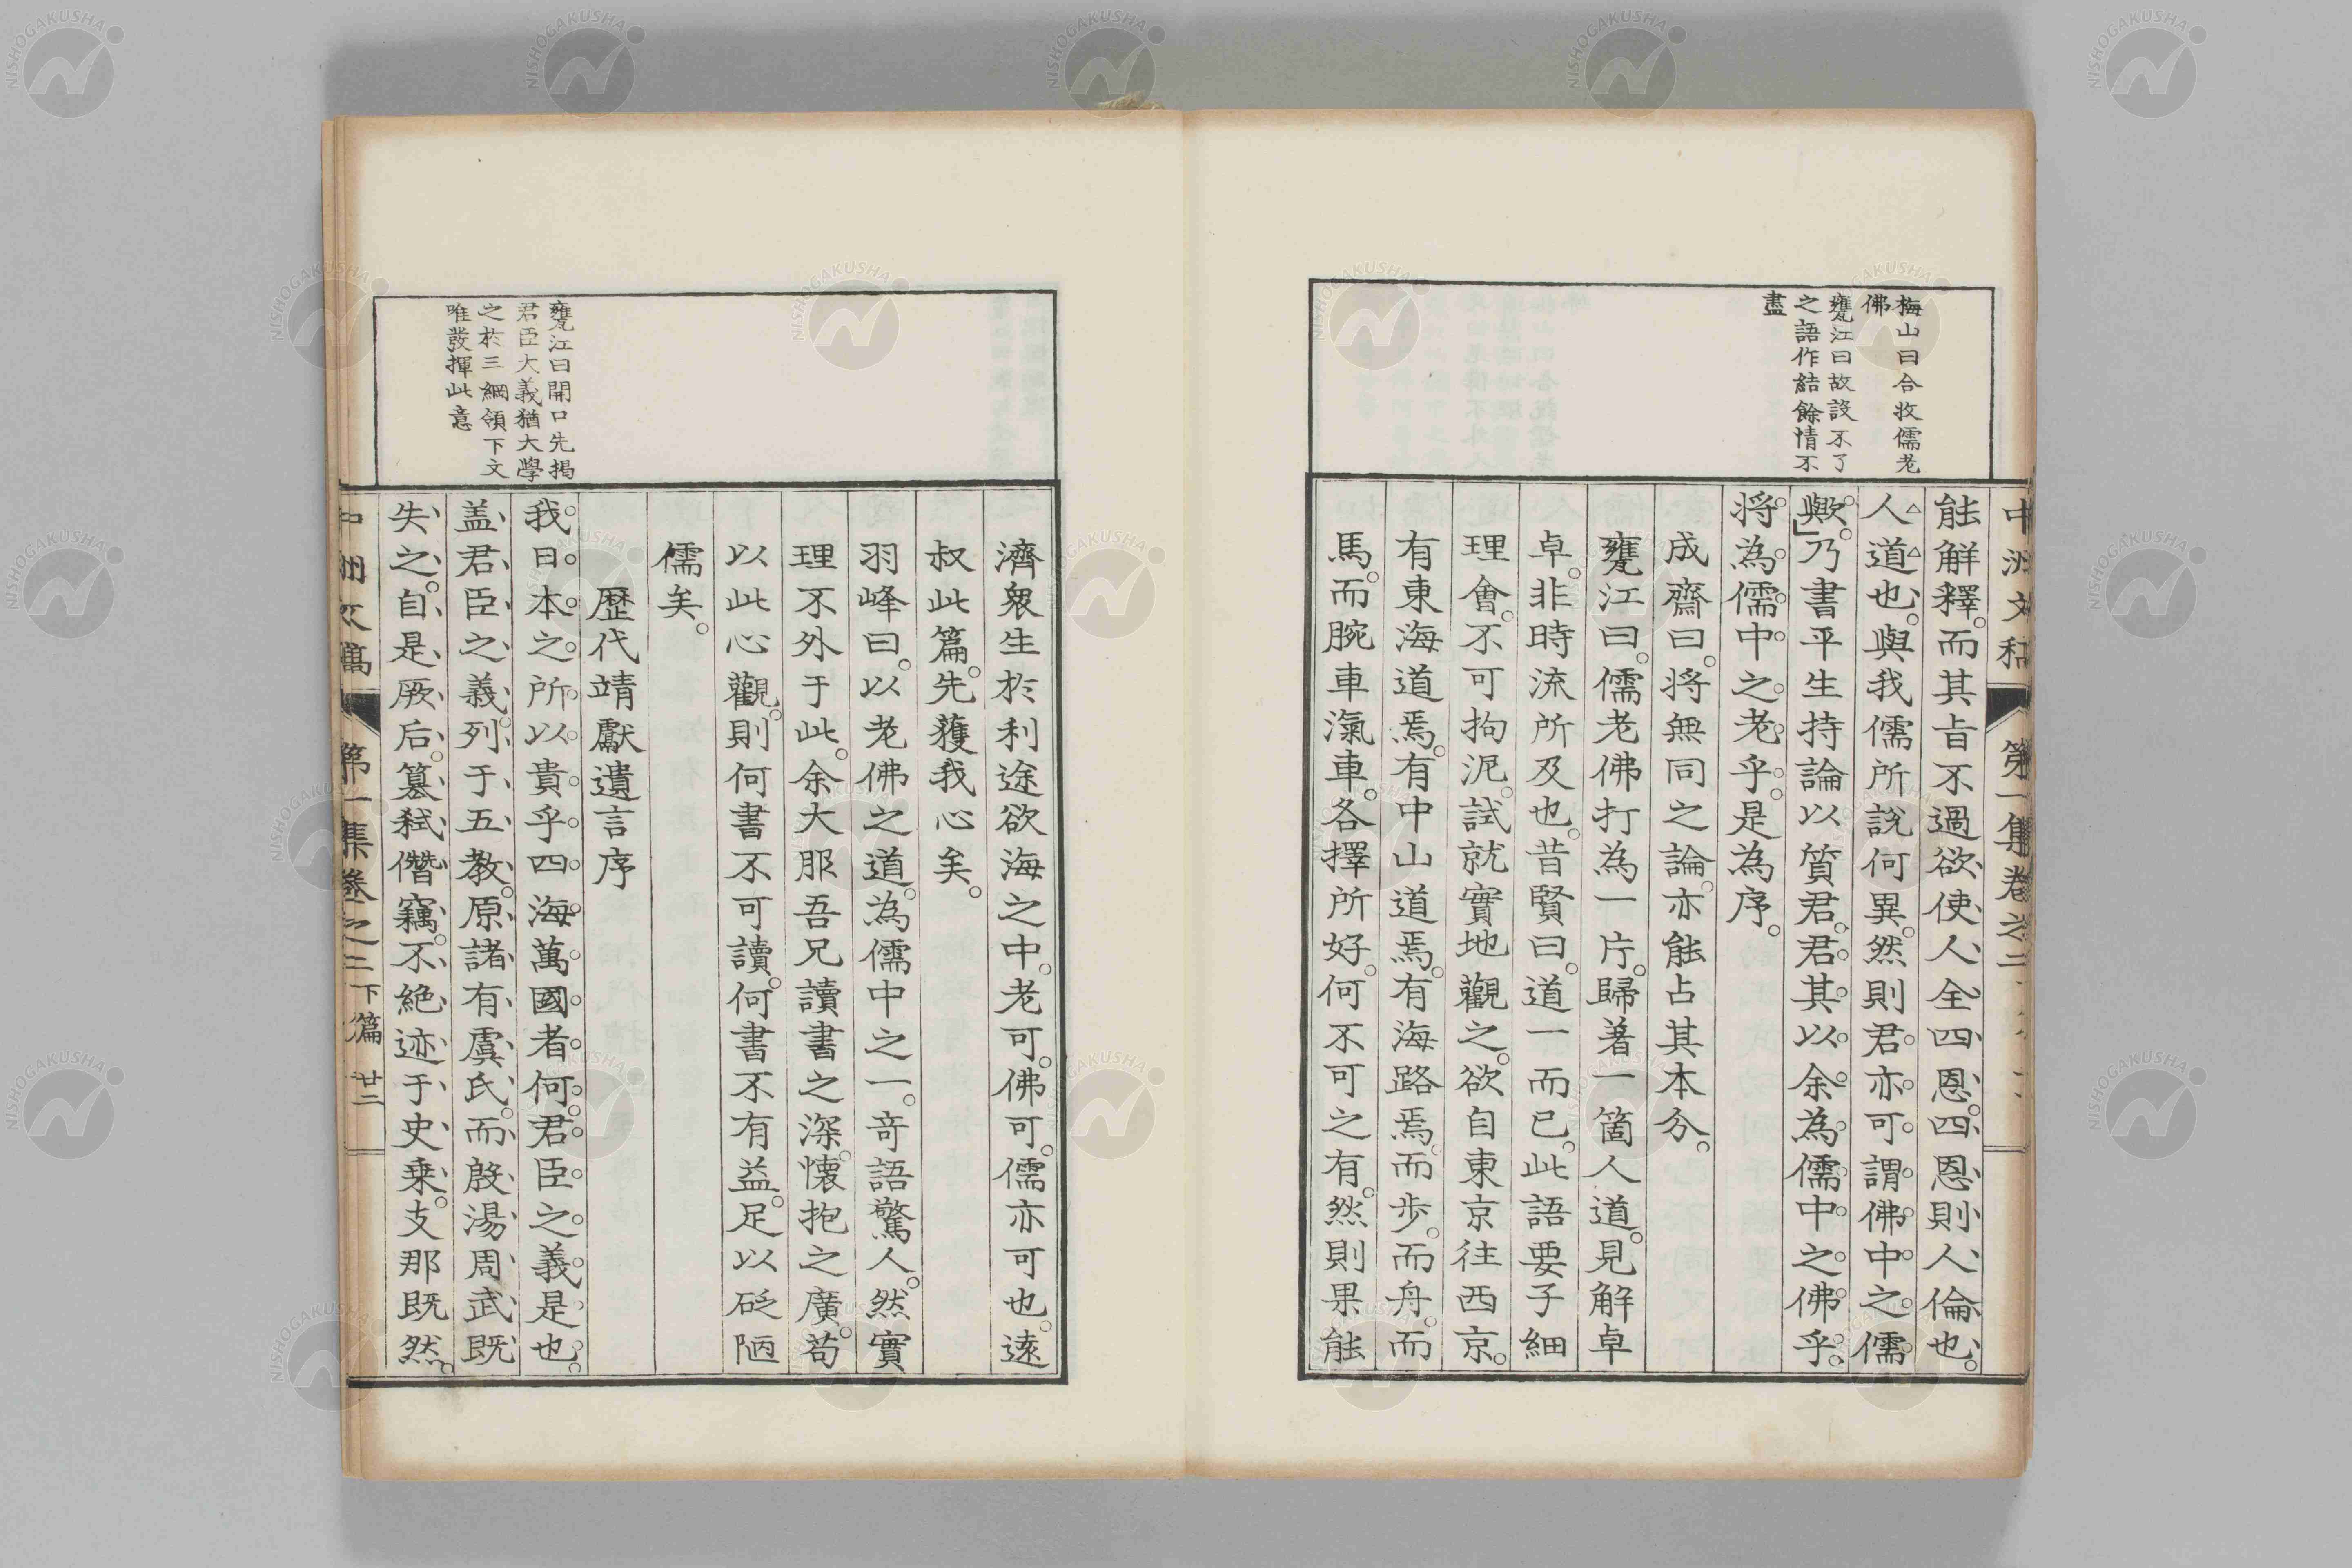 中洲文稿 第一集卷之二
梅山曰合收儒老
佛
甕江曰故設不了
之語作結餘情不
盡
能解釋。而其旨不過欲使人全四恩。四恩則人倫也。
人道也。與我儒所說何異。然則君亦可謂佛中之儒
歟。」乃書平生持論以質君。君其以余為儒中之佛乎。
將為儒中之老乎。是為序。
成齋曰。將無同之論。亦能占其本分。
甕江曰。儒老佛打為一片。歸著一箇人道。見解卓
卓。非時流所及也。昔賢曰。道一而已。此語要子細
理會。不可拘泥。試就實地觀之。欲自東京往西京。
有東海道焉。有中山道焉。有海路焉。而步。而舟。而
馬。而腕車滊車。各擇所好。何不可之有。然則果能
濟衆生於利途欲海之中。老可。佛可。儒亦可也。遠
叔此篇。先獲我心矣。
羽峰曰。以老佛之道。為儒中之一。奇語驚人。然實
理不外于此。余大服吾兄讀書之深。懷抱之廣。苟
以此心觀。則何書不可讀。何書不有益。足以砭陋
儒矣。
甕江曰開口先揭
君臣大義猶大學
之於三綱領下文
唯發揮此意
歷代靖獻遺言序
我日本之所以貴乎四海萬國者何。君臣之義是也。
盖君臣之義。列于五教。原諸有虞氏。而殷湯周武既
失之。自是厥后。簒弑僭竊。不絶迹于史乘。支那既然。
中洲文稿 第一集卷之二下篇 廿二